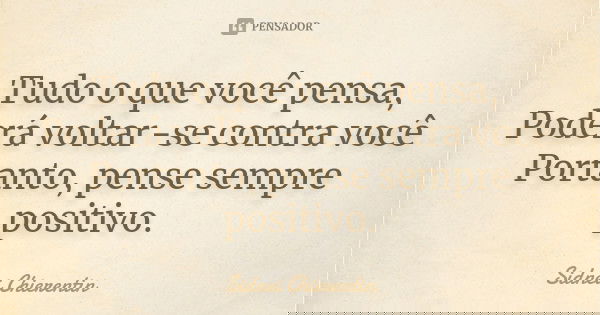 PENSADOR
Tudo o que você pensa,
Poderá voltar-se contra você
Portanto, pense sempre
positivo.
Sidnei Chierentin